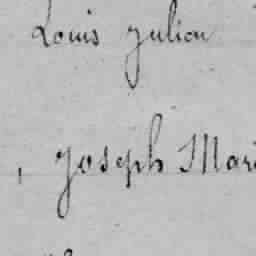 Louis Julien
, Joseph Mari